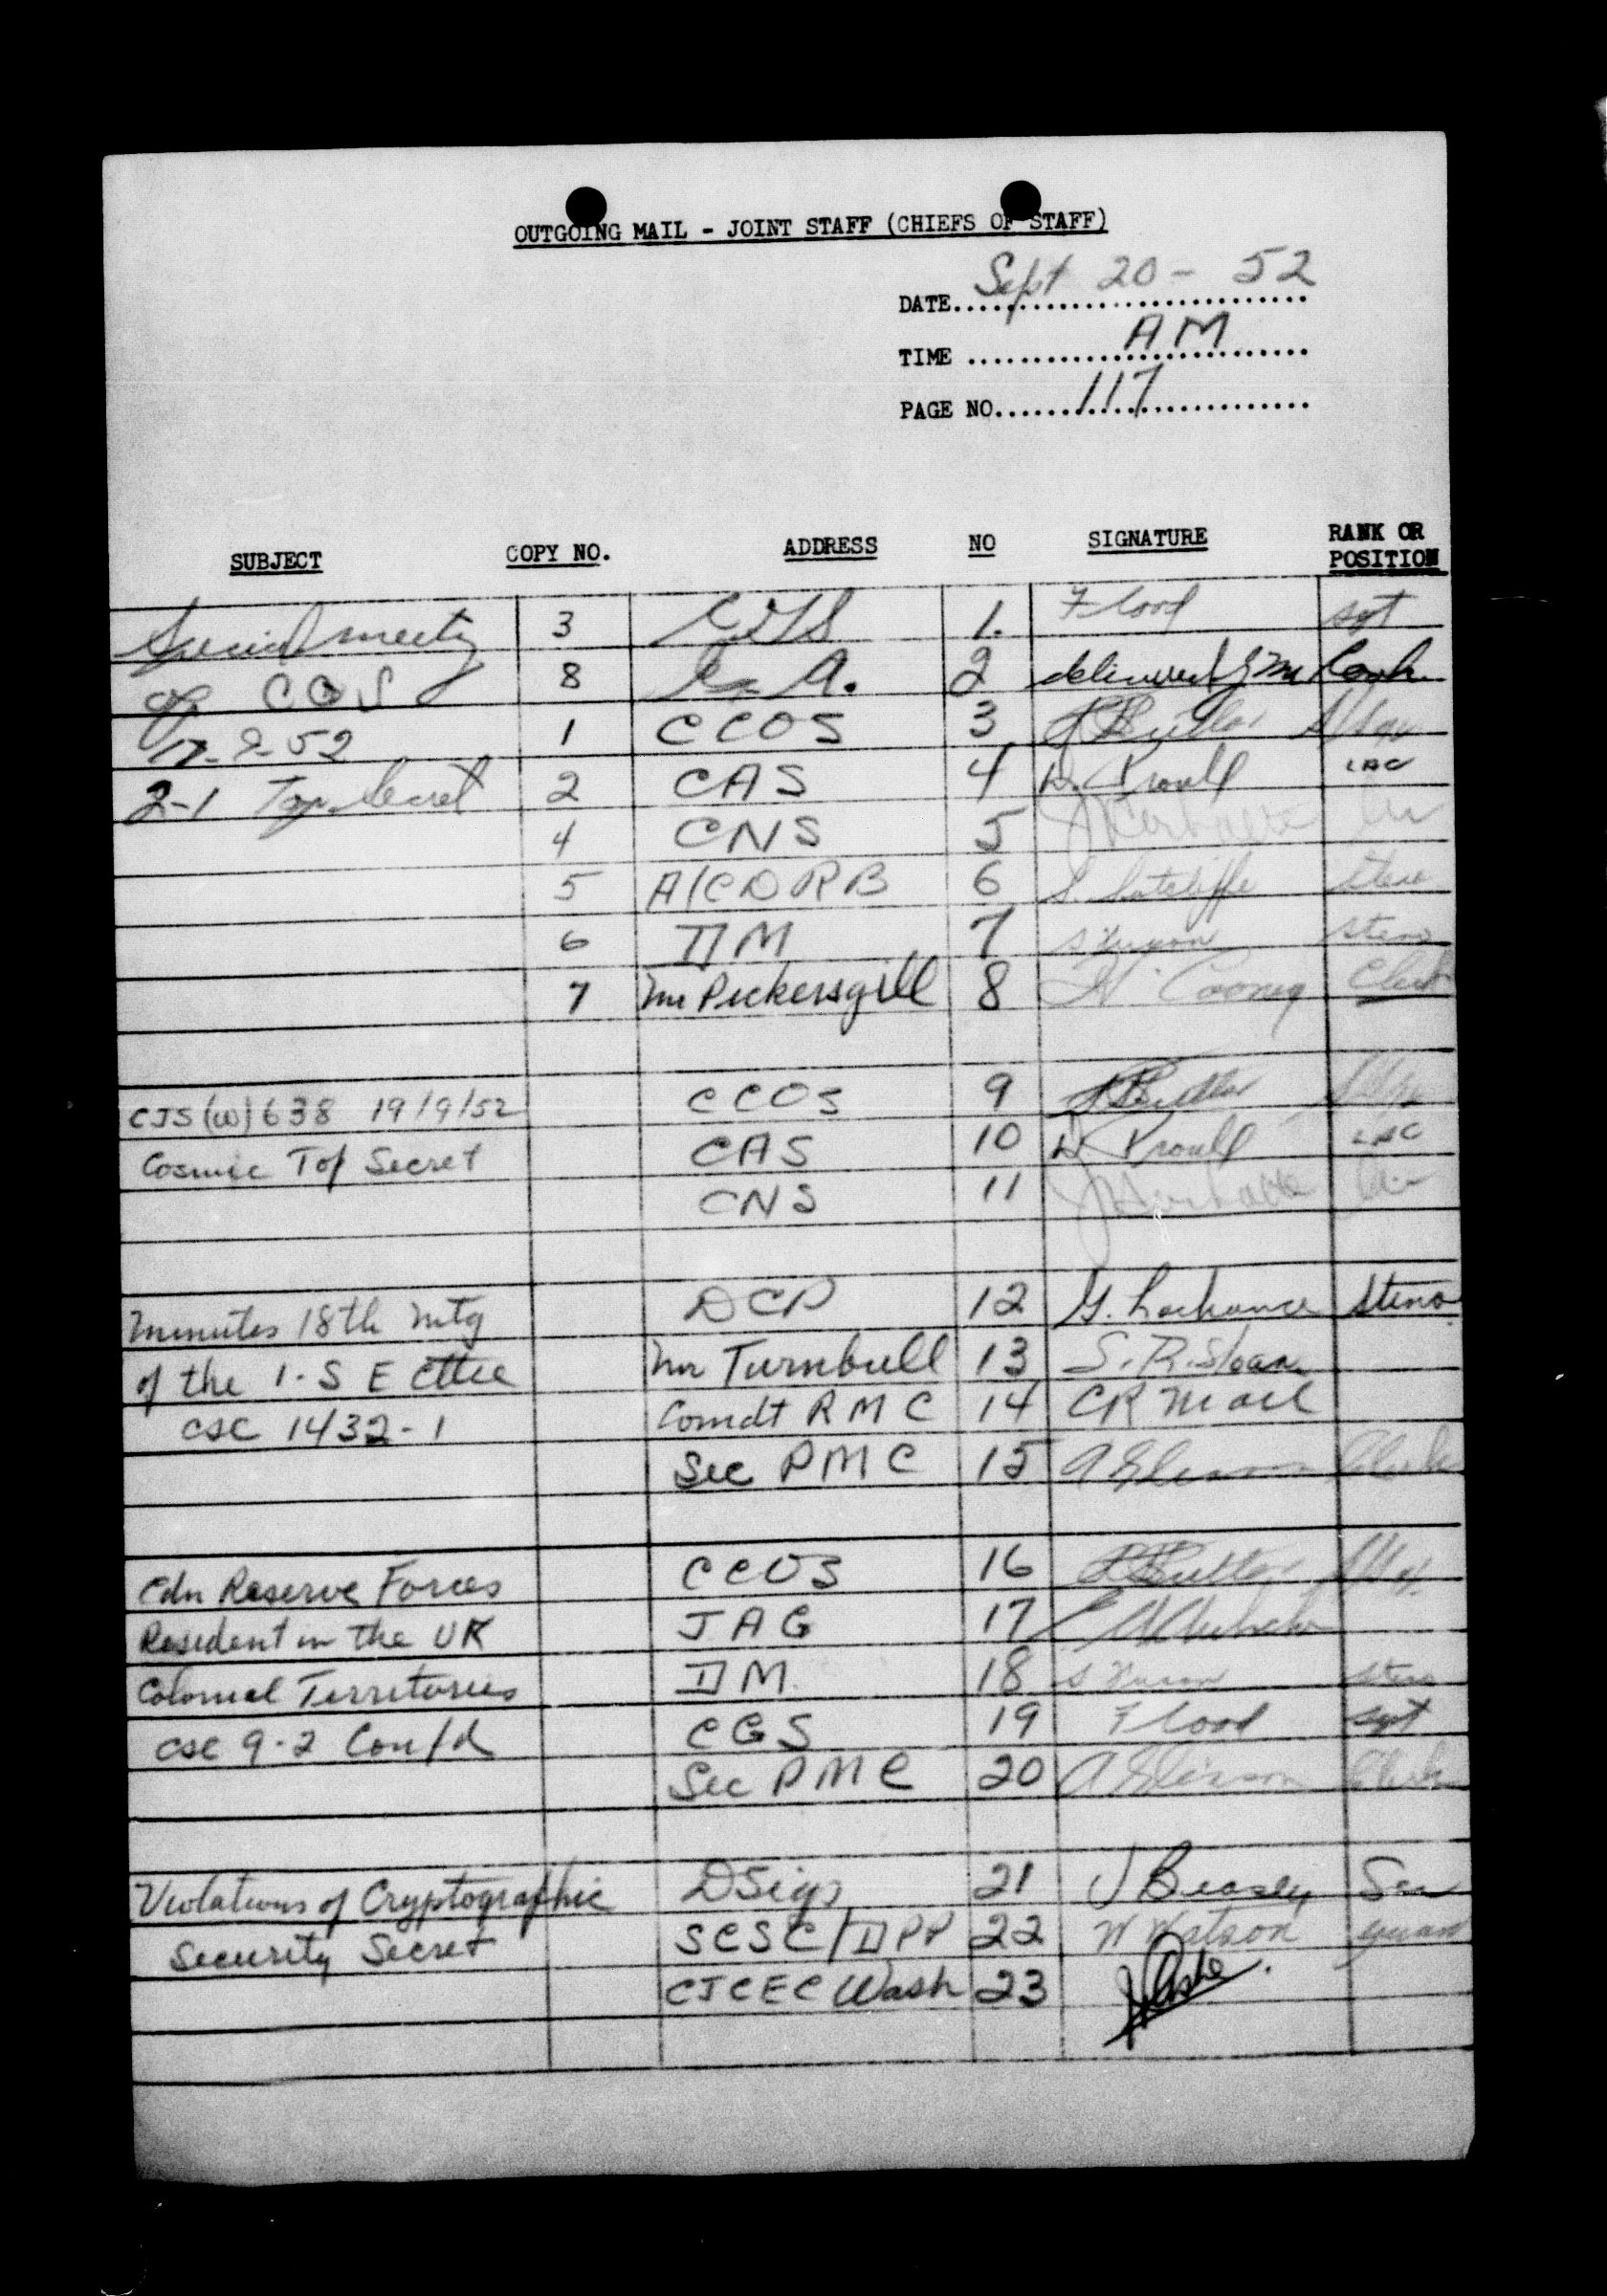 OUTGOING MAIL - JOINT STAFF (CHIEFS OF STAFF)
DATE Sept 20 - 52
TIME AM
PAGE NO. 117
SUBJECT COPY NO. ADDRESS NO SIGNATURE RANK OR POSITION
Special meeting 3 1. Flood sgt
of COS 8 2 delivered by
17-9-52 1 CCOS 3 Butler
2-1 Top Secret 2 CAS 4 D. Proull LAC
4 CNS 5
5 A/CDRB 6 S. Sutcliffe Steno
6 DM 7 Steno
7 Mr Pickersgill 8 Cooney Clerk
CJS(W)638 19/9/52 CCOS 9 Butler
Cosmic Top Secret CAS 10 D Proull LAC
CNS 11
Minutes 18th Mtg DCP 12 G. Lachance Steno
of the I.S E Cttee Mr Turnbull 13 S. R. Sloan
CSC 1432-1 Comdt RMC 14 CR Mail
Sec PMC 15 Clerk
Cdn Reserve Forces CCOS 16 Butler
Resident in the UK JAG 17
Colonial Territories DM 18 Steno
CSC 9-2 Conf'd CGS 19 Flood sgt
Sec PMC 20 Clerk
Violations of Cryptographic DSigs 21 J Beasley
Security Secret SCSC/DPP 22 W Watson
CJCEC Wash 23